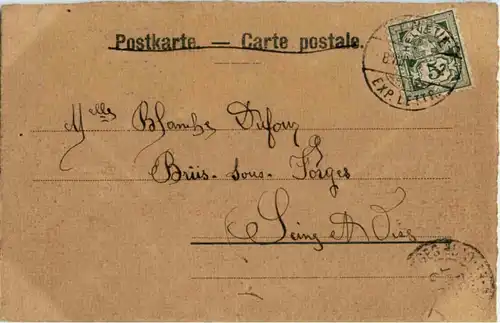 Postkarte. — Carte postale.
EXP. LETTR.
5
Melles Blanche Dufour
Brüs- sous- Forges
Seine et Oise